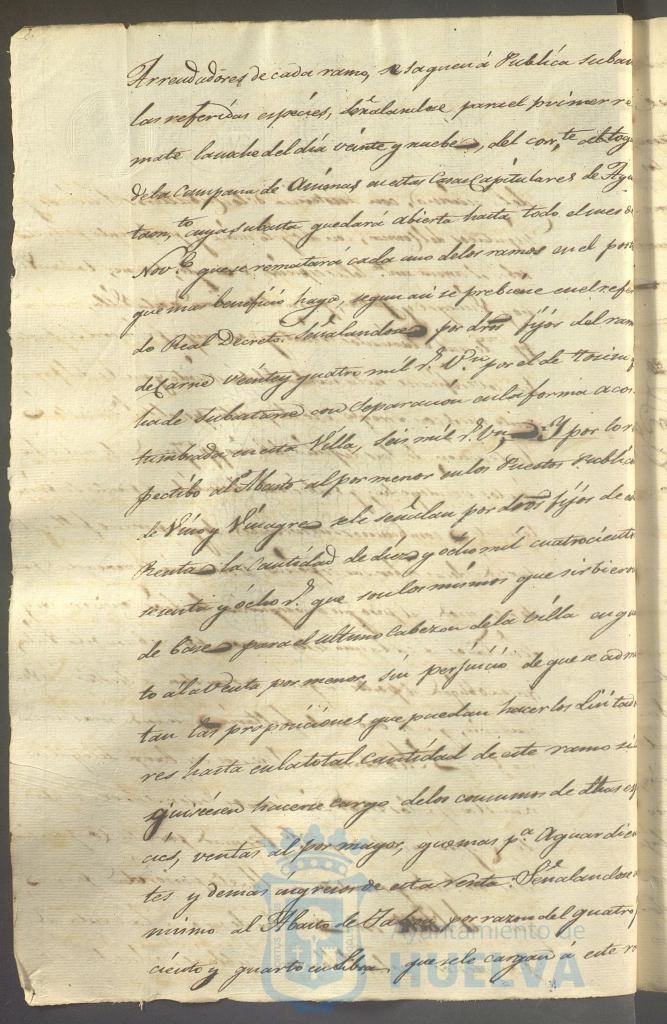 Arrendadores de cada ramo, se saquen á Publica suba
las referidas especies, señalandose para el primer re
mate la noche del dia veinte y nuebe, del cor.te al toq
de la Campana de Animas en estas Casas Capitulares de Ayu
tam.to cuya subasta quedará abierta hasta todo el mes d
Nov.e que se rematará cada uno de los ramos en el pos
que mas beneficio haga, segun asi se prebiene en el refe
do Real Decreto. Señalandose por dros fijos del ram
de Carne veinte y quatro mil r.s V.n por el de tocino q
ha de subastarse con separacion en la forma acos
tumbrada en esta Villa, seis mil r.s Vn. Y por lo r
pectibo al Abasto al por menor en los Puestos Public
de Vino y Vinagre se le señalan por dros fijos de e
Renta la Cantidad de diez y ocho mil cuatrocient
sesenta y ocho r.s que son los mismos que sirbieron
de base para el ultimo Cabezon de la villa en qu
to á la Venta por menor, sin perjuicio de que se adm
tan las proposiciones que puedan hacer los Licitad
res hasta en la total cantidad de este ramo si
quisiesen hacerse cargo de los consumos de dhas esp
cies, ventas al por mayor, quemas p.a Aguardien
tes y demas ingresos de esta renta. Señalandose
mismo al Abasto de Jabon por razon del quatro p
ciento y quarto en Libra, que se le cargan á este r
Ayuntamiento de
HUELVA